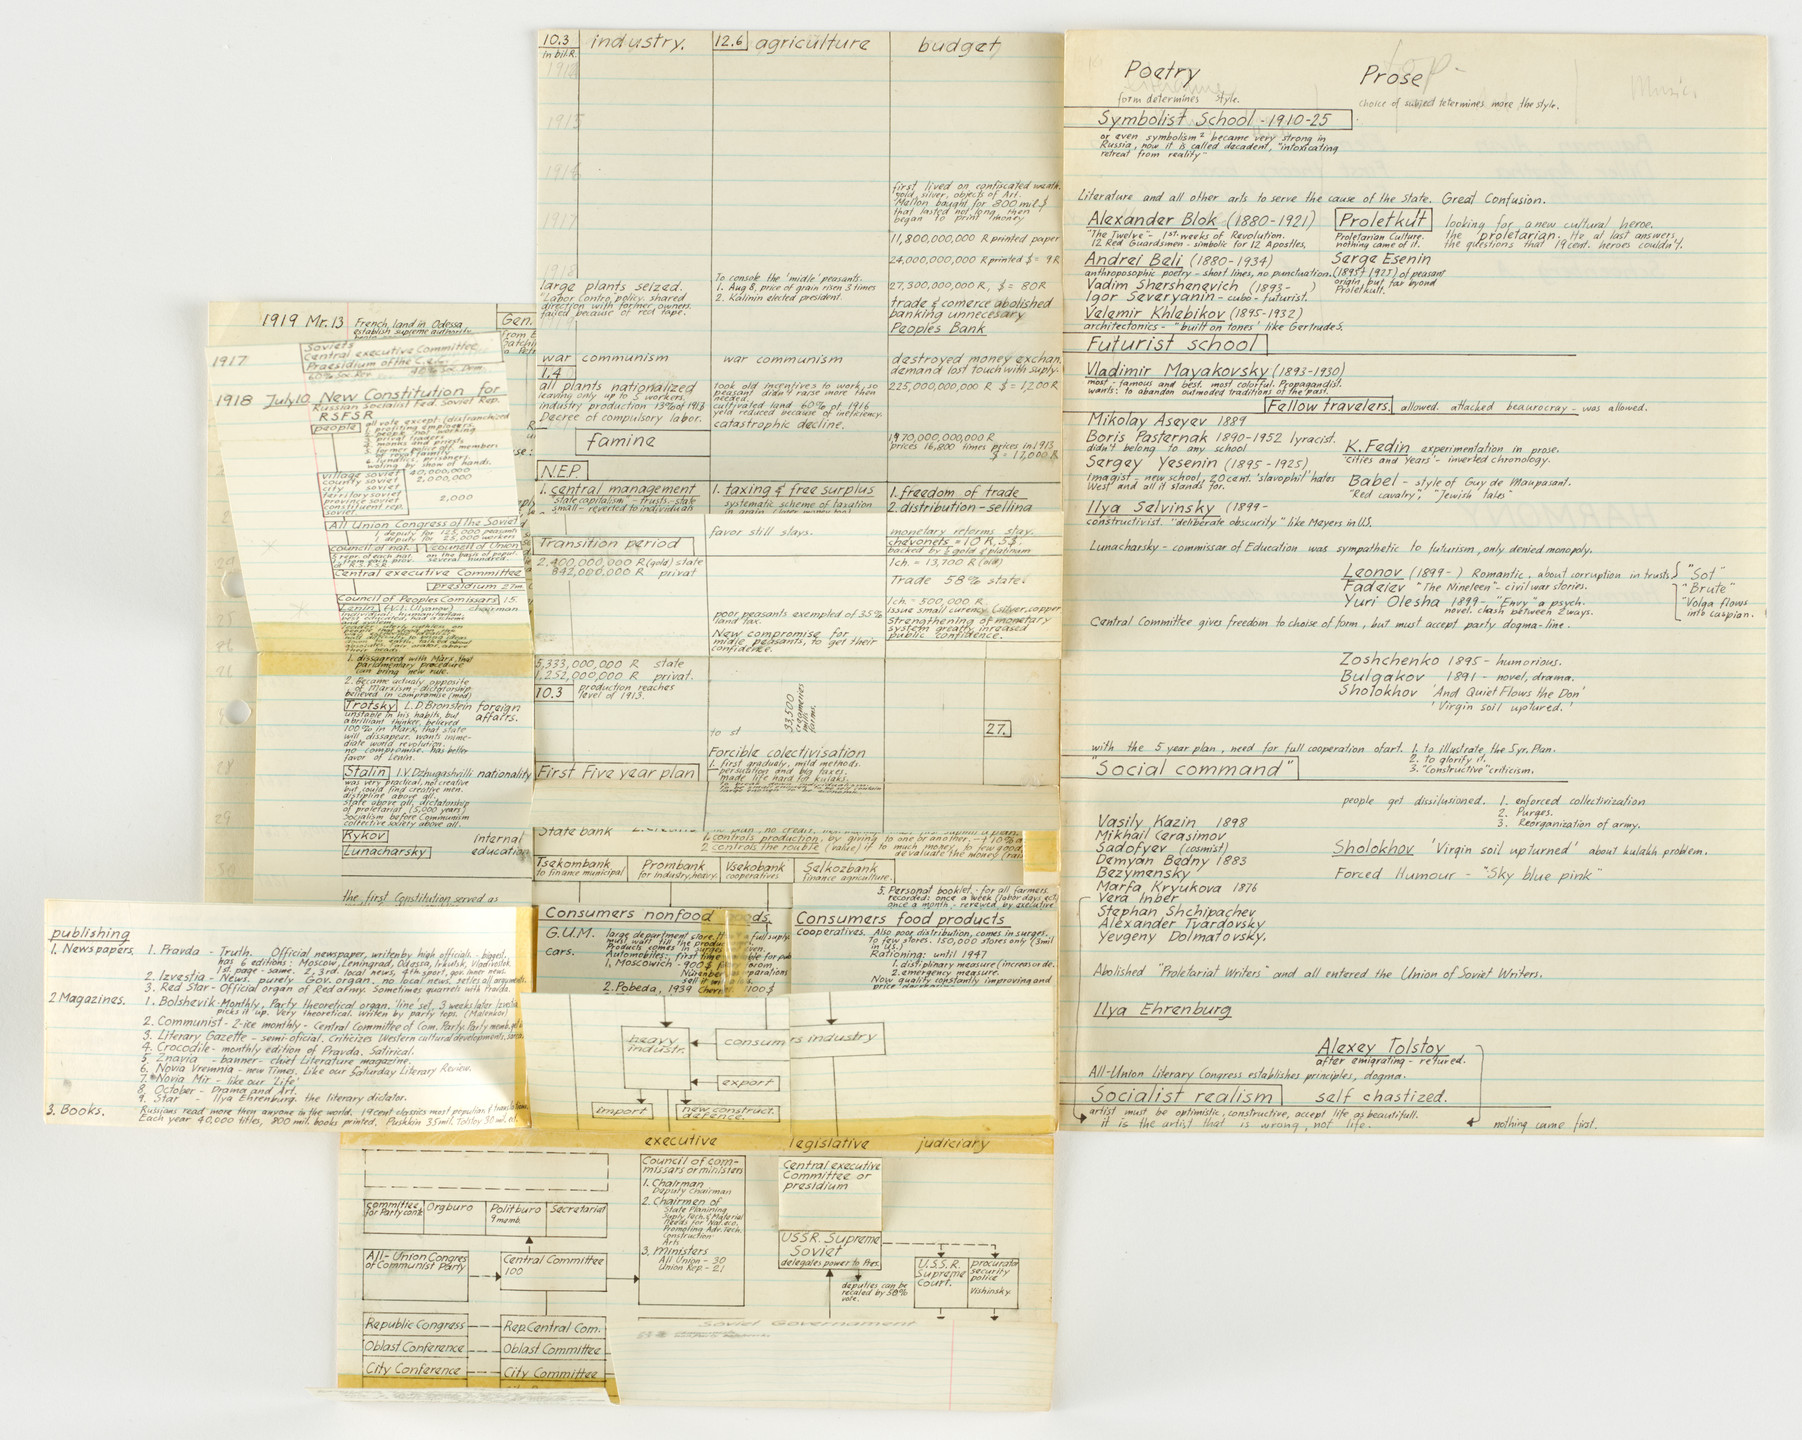 10.3 industry. 12.6 agriculture budget
in bil.R.
1914
1915
1916
1917
1918
first lived on confiscated wealth.
gold, silver, objects of Art.
Mellon bought for 800 mil.$
that lasted not long, then
began to print money
11,800,000,000 R printed paper
24,000,000,000 R printed $ = 9R
27,300,000,000 R, $ = 80R
trade & comerce abolished
banking unnecesary
Peoples Bank
large plants seized.
"Labor Control policy, shared
direction with former owners.
failed because of red tape.
To console the 'midle' peasants.
1. Aug 8, price of grain risen 3 times
2. Kalinin elected president.
war communism
1.4
all plants nationalized
leaving only up to 5 workers.
industry production 13% of 1913
Decree of compulsory labor.
war communism
took old incentives to work, so
peasant didn't raise more then
needed.
cultivated land 60% of 1916
yeld reduced because of ineficiency.
catastrophic decline.
destroyed money exchan.
demand lost touch with supply.
225,000,000,000 R $ = 1,200R
famine
1,970,000,000,000 R
prices 16,800 times prices in 1913
$ = 17,000 R
N.E.P.
1. central management
state capitalism - trusts - state
small - reverted to individuals
1. taxing & free surplus
systematic scheme of taxation
1. freedom of trade
2. distribution - selling
favor still stays.
monetary reforms stay.
chevonets = 10 R, 5$.
backed by ½ gold & platinum
1ch. = 13,700 R (old)
Trade 58% state.
1ch. = 500,000 R
issue small curency (silver, copper
Strengthening of monetary
system greatly increased
public confidence.
Transition period
2,400,000,000 R (gold) state
842,000,000 R privat
poor peasants exempled of 35%
land tax.
New compromise for
midle peasants, to get their
confidence.
5,333,000,000 R state
1,252,000,000 R privat.
10.3 production reaches
level of 1913.
33,500
to st
27.
Forcible colectivisation
1. first gradualy, mild methods.
persuation and big taxes.
made life hard for kulaks.
First Five year plan
State bank
1. controls production, by giving to one or another.
2 controls the rouble (value) if to much money, to few good
devaluate the money
Tsekombank
to finance municipal
Prombank
for industry, heavy.
Vsekobank
cooperatives
Selkozbank
finance agriculture.
5. Personal booklet - for all farmers.
recorded: once a week (labor days, ect.
once a month - renewed by executive
Consumers nonfood goods.
G.U.M. large department store.
cars. Automobiles: first time
1. Moscowich - 900 $
2. Pobeda, 1939
Consumers food products
cooperatives. Also poor distribution, comes in surges.
To few stores. 150,000 stores only (3mil
in U.S.)
Rationing: until 1947
1. disiplinary measure (increas or de.
2. emergency measure.
Now quality constantly improving and
heavy
industr.
consumers industry
export
import
new construct.
defence.
1919 Mr. 13 French, land in Odessa
establish supreme authority
Gen.
1917
Soviets
Central executive Committee
Praesidium of the C.e.c.
1918 July 10 New Constitution for
Russian Socialist Fed Soviet Rep.
R S F S R
people
all vote except (disfranchized
1. profiting employers.
2. people not working
3. privat traders
4. monks and priests
5. former police off. members
of royal family.
6. lynatics, prisoners.
voting by show of hands.
village soviet 40,000,000
county soviet 2,000,000
city soviet
territory soviet
province soviet 2,000
constituent rep.
soviet.
All Union Congress of the Soviet
1 deputy for 125,000
1 deputy for 25,000 workers
council of nat. council of Union
Central executive Committee
presidium 27m.
Council of Peoples Comissars 15.
Lenin (V.I. Ulyanov) chairman
1. dissagreed with Marx, that
parlimentary procedure
can bring new rule.
2. Became actualy opposite
of Marxism - dictatorship
believed in compromise (mod)
Trotsky L.D. Bronstein foreign
affairs.
unstable in his habits, but
a brilliant thinker, believed
100% in Marx, that state
will dissapear, wants imme-
diate world revolution.
no compromise. has better
favor of Lenin.
Stalin I.V. Dzhugashvilli nationality
was very practical, not creative
but could find creative men.
discipline above all.
State above all, dictatorship
of proletariat (5,000 years)
Socialism before Communism
collective society above all.
Rykov internal
Lunacharsky education
the first Constitution served as
publishing
1. Newspapers. 1. Pravda - Truth. Official newspaper, writen by high officials - biggest,
has 6 editions: Moscow, Leningrad, Odessa, Irkutsk, Vladivostok
1st. page - same. 2, 3rd. local news, 4th sport, gov. inner news.
2. Izvestia - News, purely Gov. organ. no local news, setles all arguments.
3. Red Star - Official organ of Red army. Sometimes quarrels with Pravda.
2. Magazines. 1. Bolshevik - Monthly, Party theoretical organ. 'line' set, 3 weeks later Izvestia
picks it up. Very theoretical. writen by party tops. (Malenkov)
2. Communist - 2-ice monthly - Central Committee of Com. Party.
3. Literary Gazette - semi-oficial. Criticizes Western cultural developments.
4. Crocodile - monthly edition of Pravda. Satirical.
5. Znavia - banner - chief Literature magazine.
6. Novia Vremnia - new Times. Like our Saturday Literary Review.
7. Novia Mir - like our 'Life'
8. October - Drama and Art
9. Star - Ilya Ehrenburg. the literary dictator.
3. Books. Russians read more then anyone in the world. 19 cent classics most popular
Each year 40,000 titles, 800 mil. books printed. Pushkin 35 mil. Tolstoy 30 mil.
executive legislative judiciary
Committee
for Party cont.
Orgburo
Politburo
9 memb.
Secretariat
All-Union Congres
of Communist Party
Central Committee
100
Council of com-
missars or ministers
1. Chairman
Deputy Chairman
2. Chairmen of
State Planining
Suply Tech. & Material
Needs for Nat. eco.
Promoting Adv. Tech.
Construction
Arts
3. Ministers
All Union - 30
Union Rep. - 21
Central executive
Committee or
presidium
USSR. Supreme
Soviet
delegates power to Pres.
deputies can be
recaled by 50%
vote.
U.S.S.R.
Supreme
Court.
procurator
security
police
Vishinsky.
Republic Congress
Rep. Central Com.
Oblast Conference
Oblast Committee
City Conference
City Committee
Soviet Governament
Poetry
form determines style.
Prose
choice of subject determines more the style.
top-
Music
Symbolist School - 1910-25
or even symbolism² became very strong in
Russia, now it is called decadent, "intoxicating
retreat from reality"
Literature and all other arts to serve the cause of the State. Great Confusion.
Alexander Blok (1880-1921)
"The Twelve" - 1st weeks of Revolution.
12 Red Guardsmen - simbolic for 12 Apostles.
Proletkult
Proletarian Culture.
nothing came of it.
looking for a new cultural heroe.
the "proletarian. He at last answers
the questions that 19 cent. heroes couldn't.
Andrei Beli (1880-1934)
anthroposophic poetry - short lines, no punctuation.
Serge Esenin
(1895-1925) of peasant
origin, but far byond
Proletkult.
Vadim Shershenevich (1893- )
Igor Severyanin - cubo-futurist.
Velemir Khlebikov (1895-1932)
architectonics - "built on tones' like Gertrude S.
Futurist school
Vladimir Mayakovsky (1893-1930)
most - famous and best. most colorful. Propagandist.
wants: to abandon outmoded traditions of the past.
Fellow travelers. allowed. attacked beaurocray - was allowed.
Mikolay Aseyev 1889
Boris Pasternak 1890-1952 lyracist.
didn't belong to any school
K. Fedin experimentation in prose.
'cities and years' - inverted chronology.
Sergey Yesenin (1895-1925)
imagist - new school, 20 cent. 'slavophil' hates
West and all it stands for.
Babel - style of Guy de Maupasant.
"Red cavalry", "Jewish tales"
Ilya Selvinsky (1899-
constructivist. "deliberate obscurity" like Meyers in U.S.
Lunacharsky - commissar of Education was sympathetic to futurism, only denied monopoly.
Leonov (1899- ) Romantic. about corruption in trusts "Sot"
Fadeiev "The Nineteen" - civil war stories. "Brute"
Yuri Olesha 1899- "Envy" a psych.
novel. clash between 2 ways.
"Volga flows
into caspian.
Central Committee gives freedom to choise of form, but must accept party dogma-line.
Zoshchenko 1895 - humorious.
Bulgakov 1891 - novel, drama.
Sholokhov 'And Quiet Flows the Don'
'Virgin soil uptured.'
with the 5 year plan, need for full cooperation of art. 1. to illustrate, the 5yr. Plan.
2. to glorify it.
3. "Constructive" criticism.
"Social command"
people get dissilusioned. 1. enforced collectivization
2. Purges.
3. Reorganization of army.
Vasily Kazin 1898
Mikhail Gerasimov
Sadofyev (cosmist)
Demyan Bedny 1883
Bezymensky
Marfa Kryukova 1876
Vera Inber
Stephan Shchipachev
Alexander Tvardovsky
Yevgeny Dolmatovsky.
Sholokhov 'Virgin soil upturned' about kulakh problem.
Forced Humour - "Sky blue pink"
Abolished "Proletariat Writers" and all entered the Union of Soviet Writers.
Ilya Ehrenburg
Alexey Tolstoy
after emigrating - retured.
All-Union Literary Congress establishes principles, dogma.
Socialist realism self chastized.
artist must be optimistic, constructive, accept life as beautifull.
it is the artist that is wrong, not life.
nothing came first.